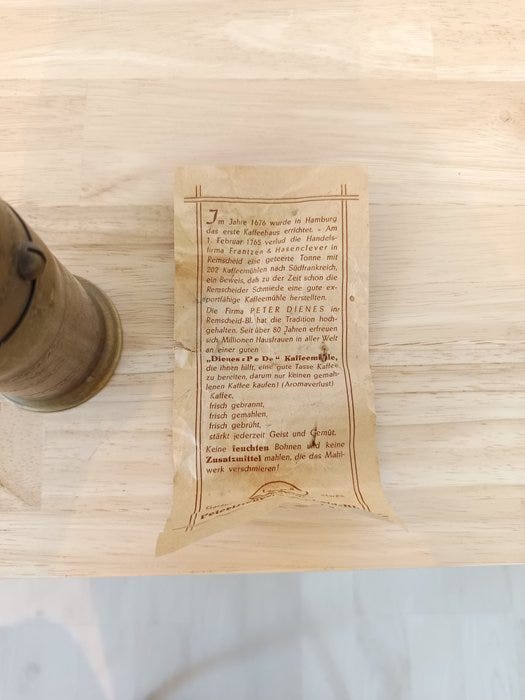 Im Jahre 1676 wurde in Hamburg
das erste Kaffeehaus errichtet. - Am
1. Februar 1765 verlud die Handels-
firma Frantzen & Hasenclever in
Remscheid eine geteerte Tonne mit
202 Kaffeemühlen nach Südfrankreich,
ein Beweis, daß zu der Zeit schon die
Remscheider Schmiede eine gute ex-
portfähige Kaffeemühle herstellten.
Die Firma PETER DIENES in
Remscheid-Bl. hat die Tradition hoch-
gehalten. Seit über 80 Jahren erfreuen
sich Millionen Hausfrauen in aller Welt
an einer guten
„Dienes-Pe De" Kaffeemühle,
die ihnen hilft, eine gute Tasse Kaffee
zu bereiten, darum nur keinen gemah-
lenen Kaffee kaufen! (Aromaverlust)
Kaffee,
frisch gebrannt,
frisch gemahlen,
frisch gebrüht,
stärkt jederzeit Geist und Gemüt.
Keine feuchten Bohnen und keine
Zusatzmittel mahlen, die das Mahl-
werk verschmieren!